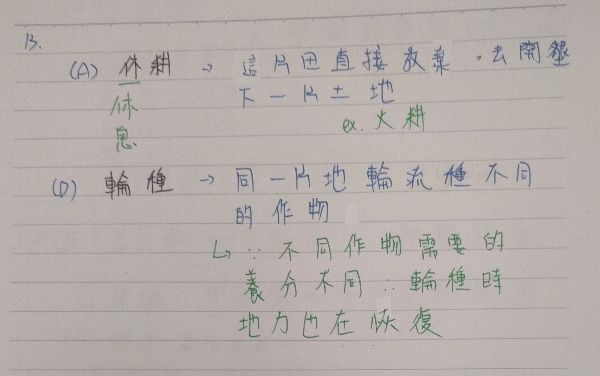 13.
(A) 休耕 → 這片田直接放棄，去開墾
休 下一片土地
息 ex. 火耕
(D) 輪種 → 同一片地輪流種不同
的作物
↳ ∵ 不同作物需要的
養分不同 ∴ 輪種時
地力也在恢復